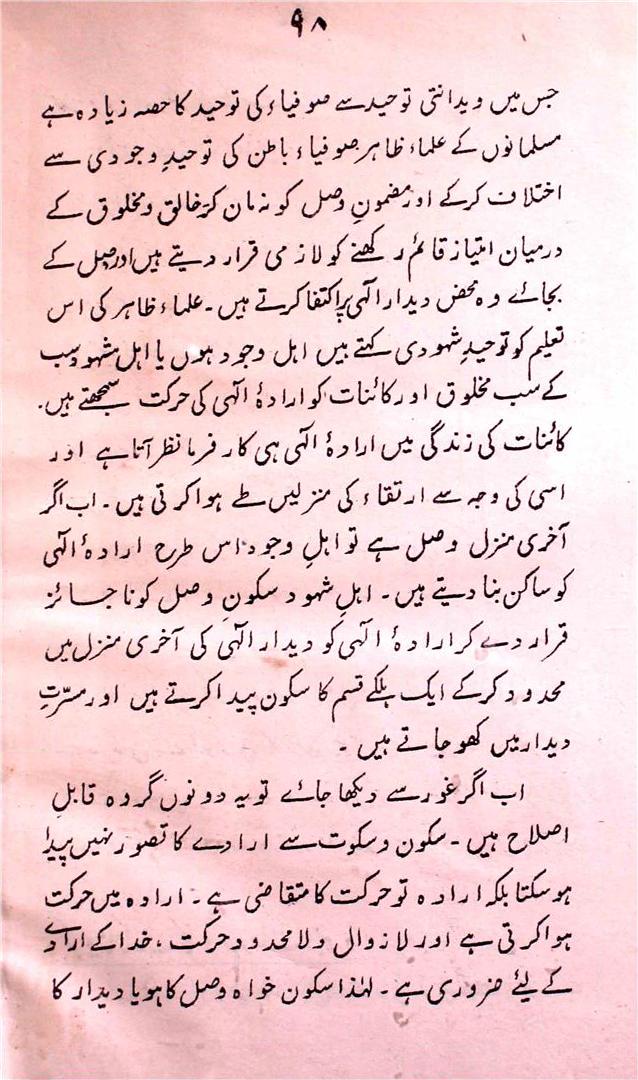 ۹۸
جس میں ویدانتی توحید سے صوفیاء کی توحید کا حصہ زیادہ ہے
مسلمانوں کے علماء ظاہر صوفیاء باطن کی توحیدِ وجودی سے
اختلاف کرکے اور مضمونِ وصل کو نہ مان کر خالق و مخلوق کے
درمیان امتیاز قائم رکھنے کو لازمی قرار دیتے ہیں اور وصل کے
بجائے وہ محض دیدار الٰہی پر اکتفا کرتے ہیں۔ علماء ظاہر کی اس
تعلیم کو توحیدِ شہودی کہتے ہیں اہل وجود ہوں یا اہل شہود سب
کے سب مخلوق اور کائنات کو ارادۂ الٰہی کی حرکت سمجھتے ہیں۔
کائنات کی زندگی میں ارادۂ الٰہی ہی کارفرما نظر آتا ہے اور
اسی کی وجہ سے ارتقاء کی منزلیں طے ہوا کرتی ہیں۔ اب اگر
آخری منزل وصل ہے تو اہلِ وجود اس طرح ارادۂ الٰہی
کو ساکن بنا دیتے ہیں۔ اہلِ شہود سکونِ وصل کو ناجائز
قرار دے کر ارادۂ الٰہی کو دیدار الٰہی کی آخری منزل میں
محدود کرکے ایک ہلکے قسم کا سکون پیدا کرتے ہیں اور مسرّتِ
دیدار میں کھو جاتے ہیں ۔
اب اگر غور سے دیکھا جائے تو یہ دونوں گروہ قابلِ
اصلاح ہیں۔ سکون و سکوت سے ارادے کا تصور نہیں پیدا
ہو سکتا بلکہ ارادہ تو حرکت کا متقاضی ہے۔ ارادہ میں حرکت
ہوا کرتی ہے اور لازوال و لامحدود حرکت، خدا کے ارادے
کے لیئے ضروری ہے۔ لہٰذا سکون خواہ وصل کا ہو یا دیدار کا